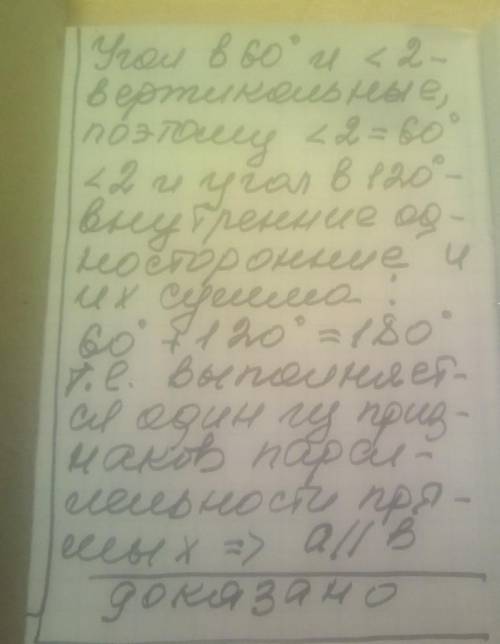 Угол в 60° и <2-
вертикальные,
поэтому <2=60°
<2 и угол в 120°-
внутренние од-
носторонние и
их сумма:
60°+120°=180°
т.е. выполняет-
ся один из приз-
наков парал-
лельности пря-
мых => a//в
доказано